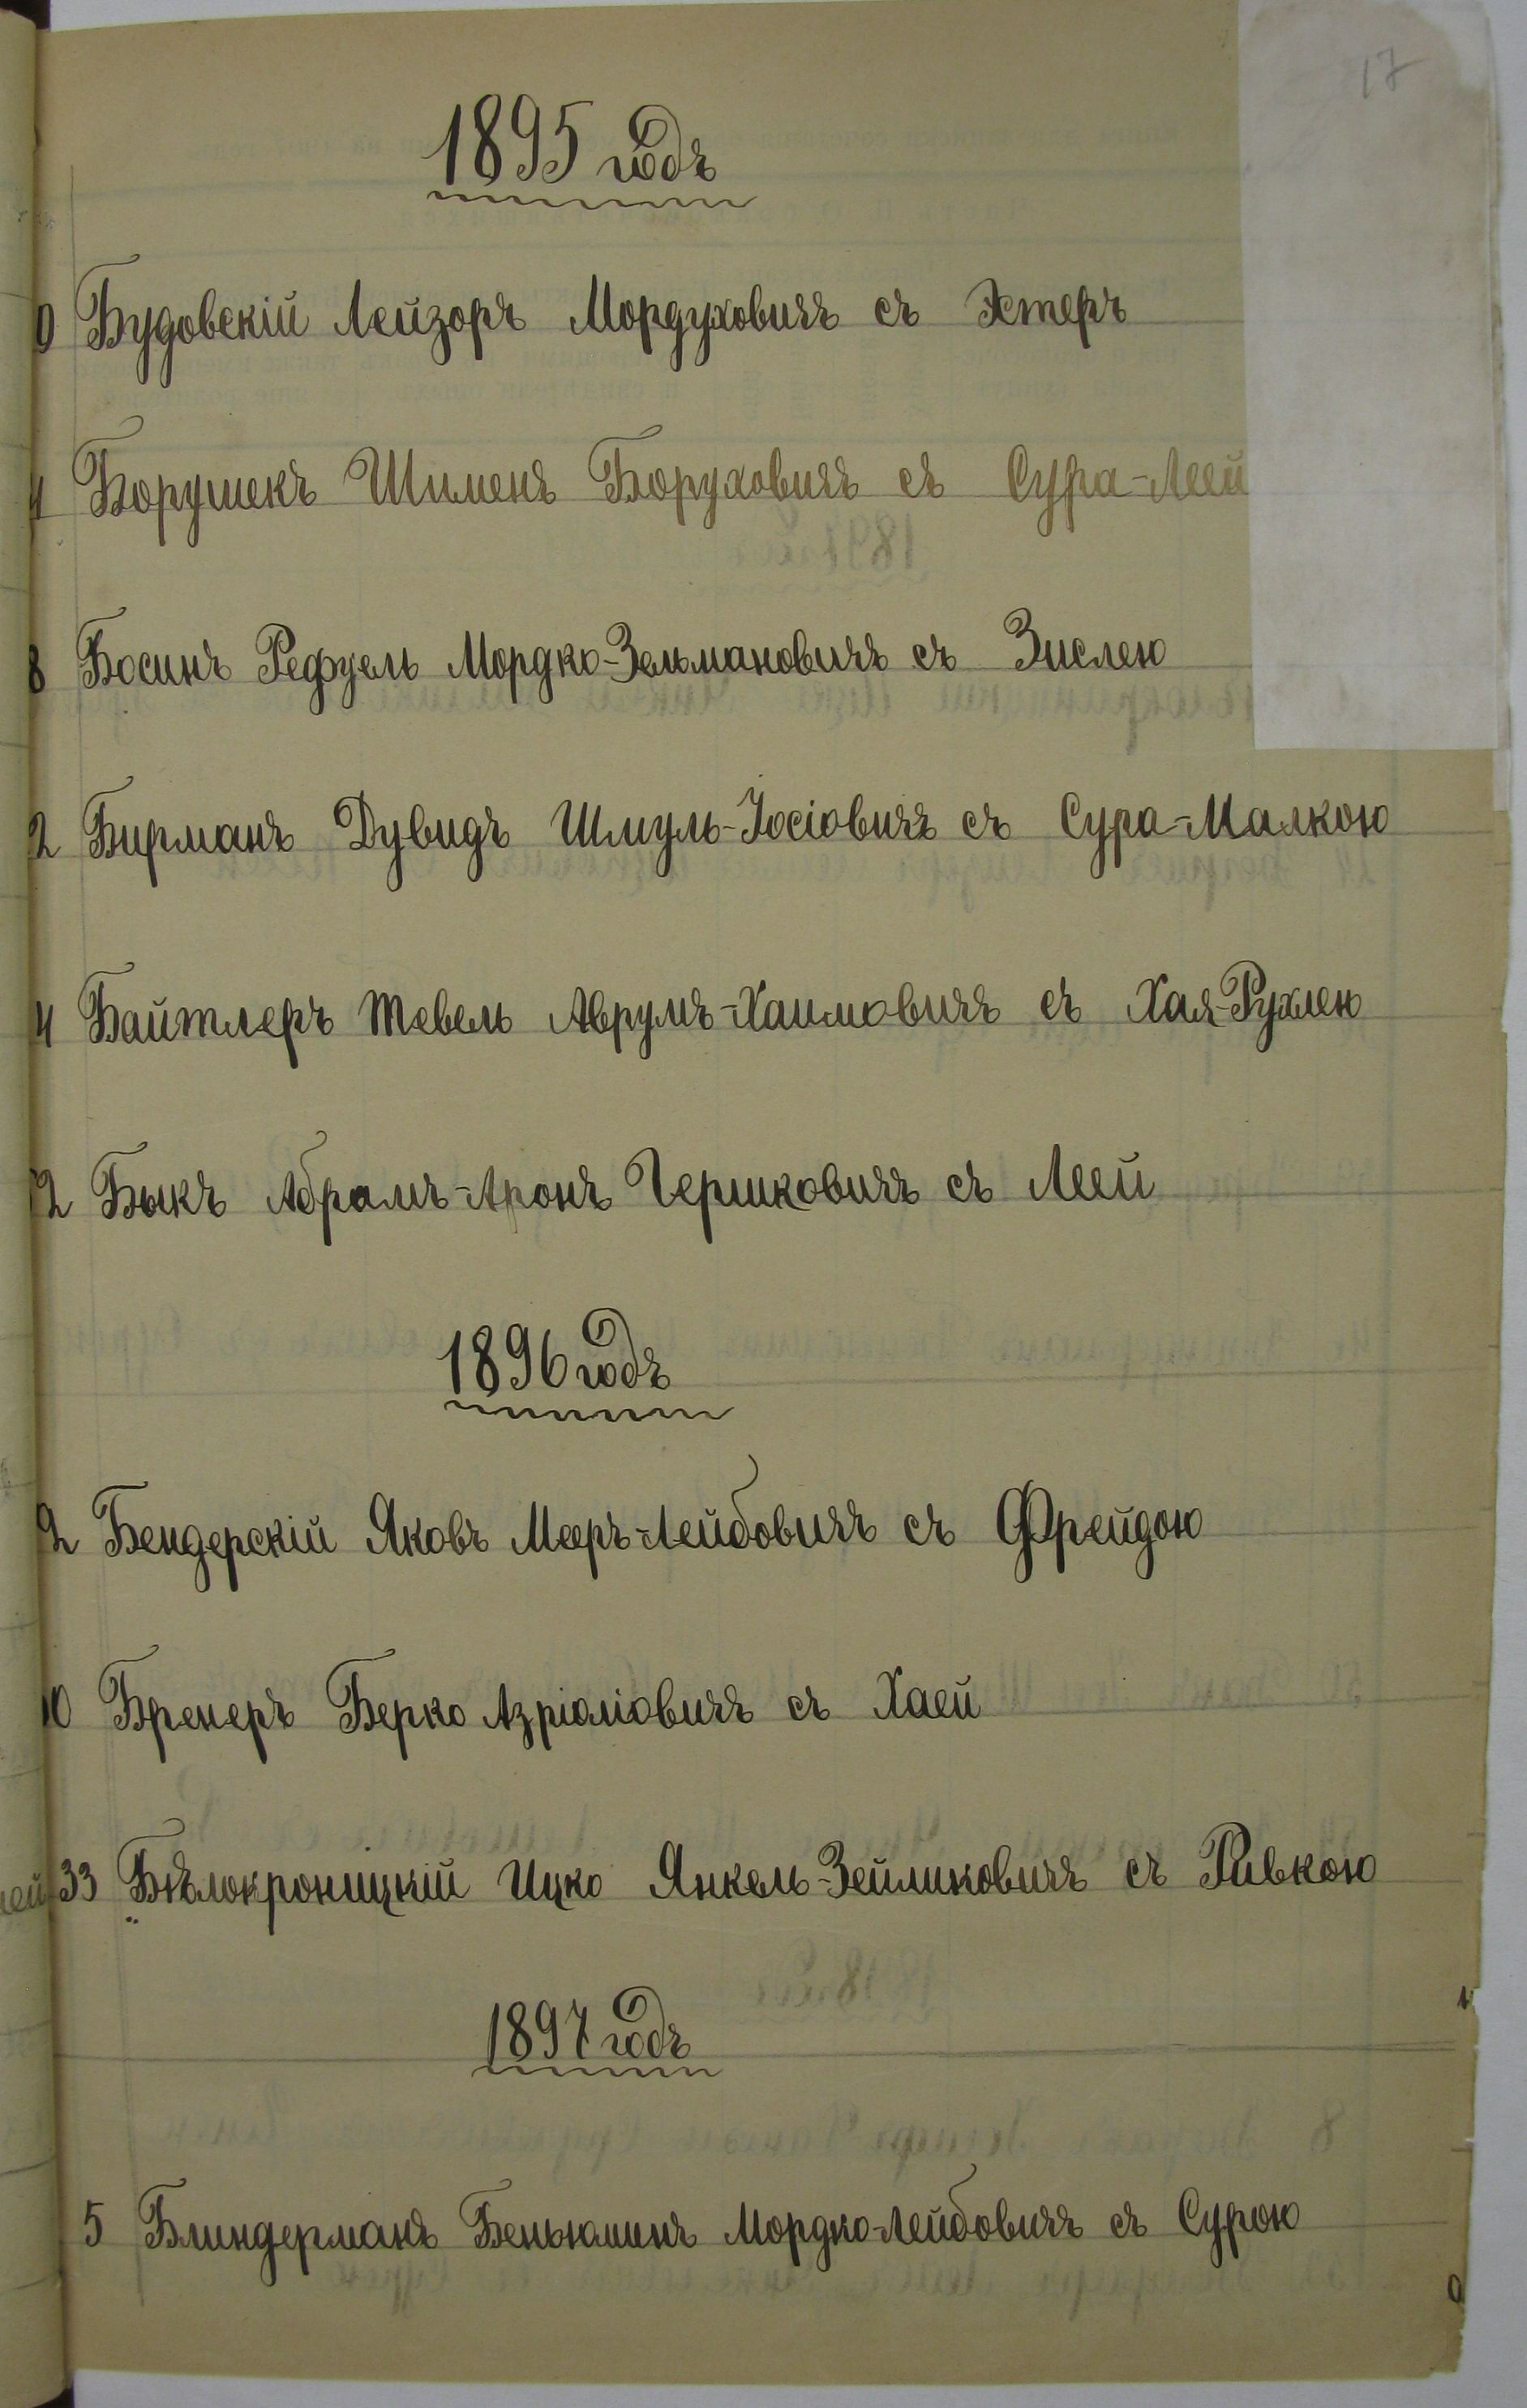 17
1895 годъ
0 Будовскій Лейзоръ Мордуховичъ съ Эстеръ
4 Борушекъ Шименъ Боруховичъ съ Сура-Леей
8 Босинъ Рефуель Мордко-Зельмановичъ съ Зислею
2 Бирманъ Дувидъ Шмуль-Іосіовичъ съ Сура-Малкою
4 Байтлеръ Тевель Аврумъ-Хаимовичъ съ Хая-Рухлею
2 Быкъ Абрамъ-Аронъ Гершковичъ съ Леей
1896 годъ
2 Бендерскій Яковъ Меер-Лейбовичъ съ Фрейдою
10 Бренеръ Берко Азріоліовичъ съ Хаей
33 Бѣлокроницкій Ицко Янкель-Зейликовичъ съ Ривкою
1897 годъ
5 Блиндерманъ Беньюминъ Мордко-Лейбовичъ съ Сурою